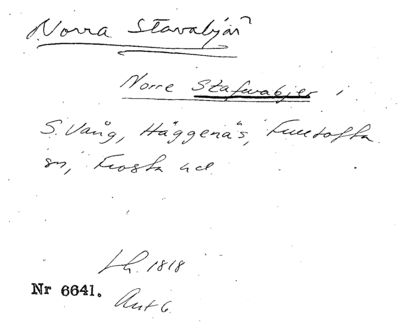 Norra Stavabjär
Norre Stafwabjer i
S. Vång, Häggenäs, Fulltofta
sn, Frosta hd
Lh. 1818
Nr 6641.
Akt 6.